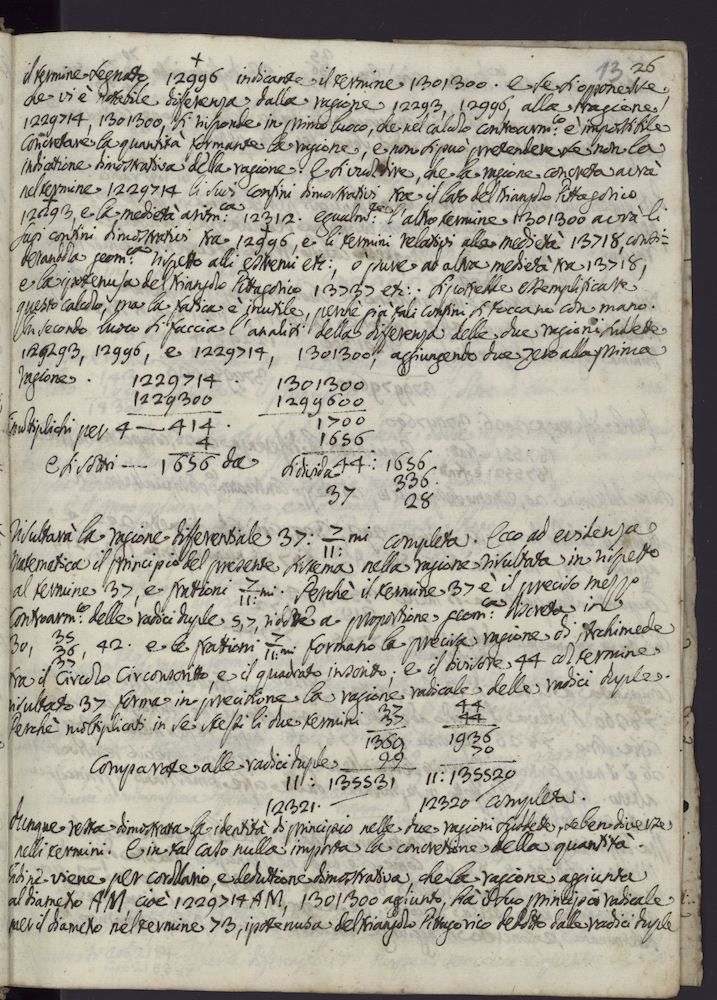 43 26
il termine segnato 12996 indicante il termine 1301300. e se si opponesse,
che vi è notabile differenza dalla ragione 12293, 12996, alla ragione
1229714, 1301300, si risponde in primo luoco, che nel calcolo controarm:co è impossibile
concretare la quantità formante la ragione, e non si può pretendere se non la
indicatione dimostrativa della ragione. E si vuol dire, che la ragione concreta avrà
nel termine 1229714 li suoi confini dimostrativi tra il lato del triangolo Pittagorico
12293, e la medietà aritm:ca 12312. egualm:te l'altro termine 1301300 avrà li
suoi confini dimostrativi tra 12996, e li termini relativi alla medietà 13718, consi-
derandola geom:ca rispetto alli estremi etc:, o pure ad altra medietà tra 13718,
e la ipotenusa del triangolo Pittagorico 13737 etc:. Si potrebbe esemplificare
questo calcolo, ma la fatica è inutile, perchè già tali confini si toccano con mano.
In secondo luoco si faccia l'analisi della differenza delle due ragioni sudette
12293, 12996, e 1229714, 1301300, aggiungendo due zero alla prima
ragione. 1229714. 1301300
1229300 1299600
Multiplichi per 4 — 414. 1700
4 1656
e si sottri — 1656 da si divida 44: 1656
37 336.
28
Risultarà la ragione differentiale 37: 7/11: mi completa. Ecco ad evidenza
matematica il principio del presente sistema nella ragione risultata in rispetto
al termine 37, e frattioni 7/11: mi. Perchè il termine 37 è il preciso mezzo
Controarm:co delle radici duple 5,7, ridotte a proportione geom:ca discreta in
30, 35, 36, 37, 42. e le frattioni 7/11: mi formano la precisa ragione di Archimede
tra il Circolo Circonscritto, e il quadrato inscritto; e il divisore 44 col termine
risultato 37 forma in precisione la ragione radicale delle radici duple.
Perchè moltiplicati in se stessi li due termini 37 44
37 44
1369 1936
Comparate alle radici duple 99 70
11: 135531 11: 135520
12321. 12320 completa.
Dunque resta dimostrata la identità di principio nelle due ragioni sudette, se ben diverse
nelli termini. E in tal caso nulla importa la concretione della quantità.
Indi ne viene per corollario, e deduttione dimostrativa, che la ragione aggiunta
al diametro AM cioè 1229714 AM, 1301300 aggiunto, hà il suo principio radicale
per il diametro nel termine 73, ipotenusa del triangolo Pittagorico dedotto dalle radici duple